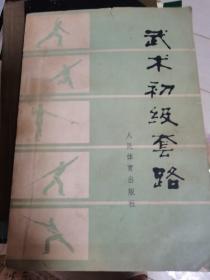 武术初级套路
人民体育出版社